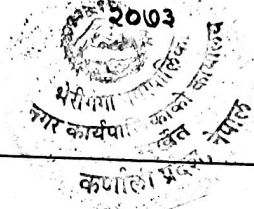 २०७३
भेरीगंगा नगरपालिका
नगर कार्यपालिकाको कार्यालय
सुर्खेत
कर्णाली प्रदेश, नेपाल